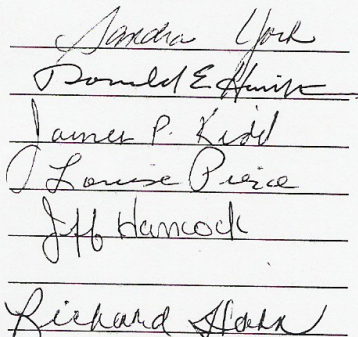 Sandra York
Donald E
James P. Kidd
J Louise Pierce
Jeff Hancock
Richard Horn